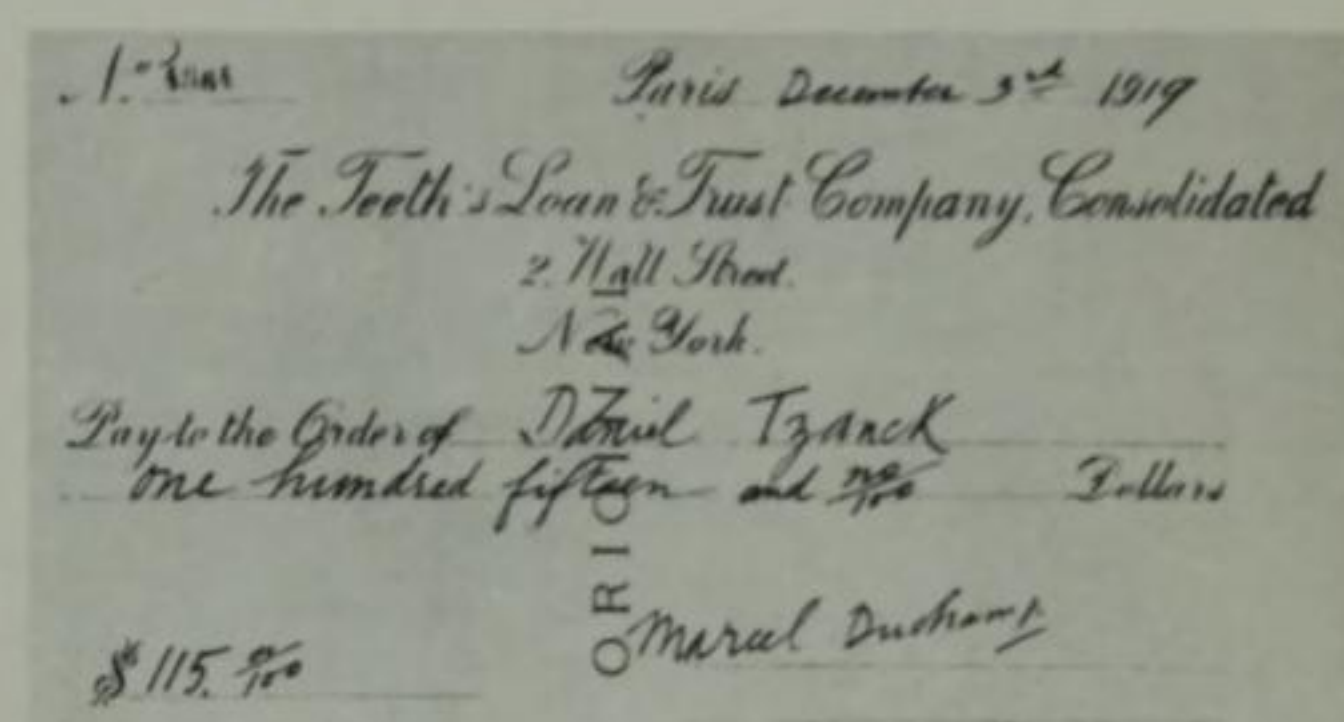 No.
Paris December 3rd 1919
The Teeth's Loan & Trust Company, Consolidated
2. Wall Street.
New York.
Pay to the Order of Daniel Tzanck
one hundred fifteen and no/100 Dollars
ORIGINAL
Marcel Duchamp
$ 115. 0/100